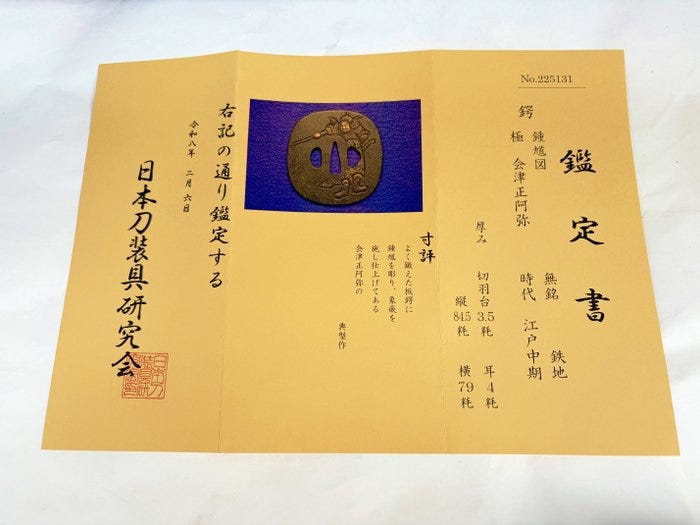 No.225131
鑑定書
鍔 鍾馗図 無銘 鉄地
極 会津正阿弥 時代 江戸中期
厚み 切羽台 3.5粍 耳 4粍
縦 84.5粍 横 79粍
寸評
よく鍛えた板鍔に
鍾馗を彫り、象嵌を
施し仕上げてある
会津正阿弥の
典型作
右記の通り鑑定する
令和八年 二月 六日
日本刀装具研究会